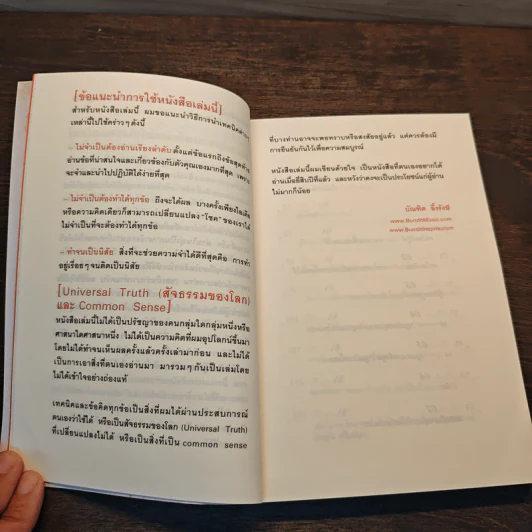 [ข้อแนะนำการใช้หนังสือเล่มนี้]
สำหรับหนังสือเล่มนี้ ผมขอแนะนำวิธีการนำเทคนิคต่าง
เหล่านี้ไปใช้คร่าวๆ ดังนี้
– ไม่จำเป็นต้องอ่านเรียงลำดับ ตั้งแต่ข้อแรกถึงข้อสุดท้าย
อ่านข้อที่น่าสนใจและเกี่ยวข้องกับตัวคุณเองมากที่สุด เพราะ
จะจำและนำไปปฏิบัติได้ง่ายที่สุด
– ไม่จำเป็นต้องทำได้ทุกข้อ ถึงจะได้ผล บางครั้งเพียง
หรือความคิดเดียวก็สามารถเปลี่ยนแปลง "โชค" ของเราได้
ไม่จำเป็นที่จะต้องทำได้ทุกข้อ
– ทำจนเป็นนิสัย สิ่งที่จะช่วยความจำได้ดีที่สุดคือ การทำ
อยู่เรื่อยๆ จนติดเป็นนิสัย
[Universal Truth (สัจธรรมของโลก)
และ Common Sense]
หนังสือเล่มนี้ไม่ได้เป็นปรัชญาของคนกลุ่มใดกลุ่มหนึ่งหรือ
ศาสนาใดศาสนาหนึ่ง ไม่ได้เป็นความคิดที่ผมอุปโลกน์ขึ้นมา
โดยไม่ได้ทำจนเห็นผลครั้งแล้วครั้งเล่ามาก่อน และไม่ได้
เป็นการเอาสิ่งที่ตนเองอ่านมา มารวมๆ กันเป็นเล่มโดย
ไม่ได้เข้าใจอย่างถ่องแท้
เทคนิคและข้อคิดทุกข้อเป็นสิ่งที่ผมได้ผ่านประสบการณ์
ตนเองว่าใช้ได้ หรือเป็นสัจธรรมของโลก (Universal Truth)
ที่เปลี่ยนแปลงไม่ได้ หรือเป็นสิ่งที่เป็น common sense
ที่บางท่านอาจจะพอทราบหรือสงสัยอยู่แล้ว แต่ควรต้องมี
การยืนยันกันไว้เพื่อความสมบูรณ์
หนังสือเล่มนี้ผมเขียนด้วยใจ เป็นหนังสือที่ตนเองอยากได้
อ่านเมื่อยี่สิบปีที่แล้ว และหวังว่าคงจะเป็นประโยชน์แก่ผู้อ่าน
ไม่มากก็น้อย
บัณฑิต อึ้งรังษี